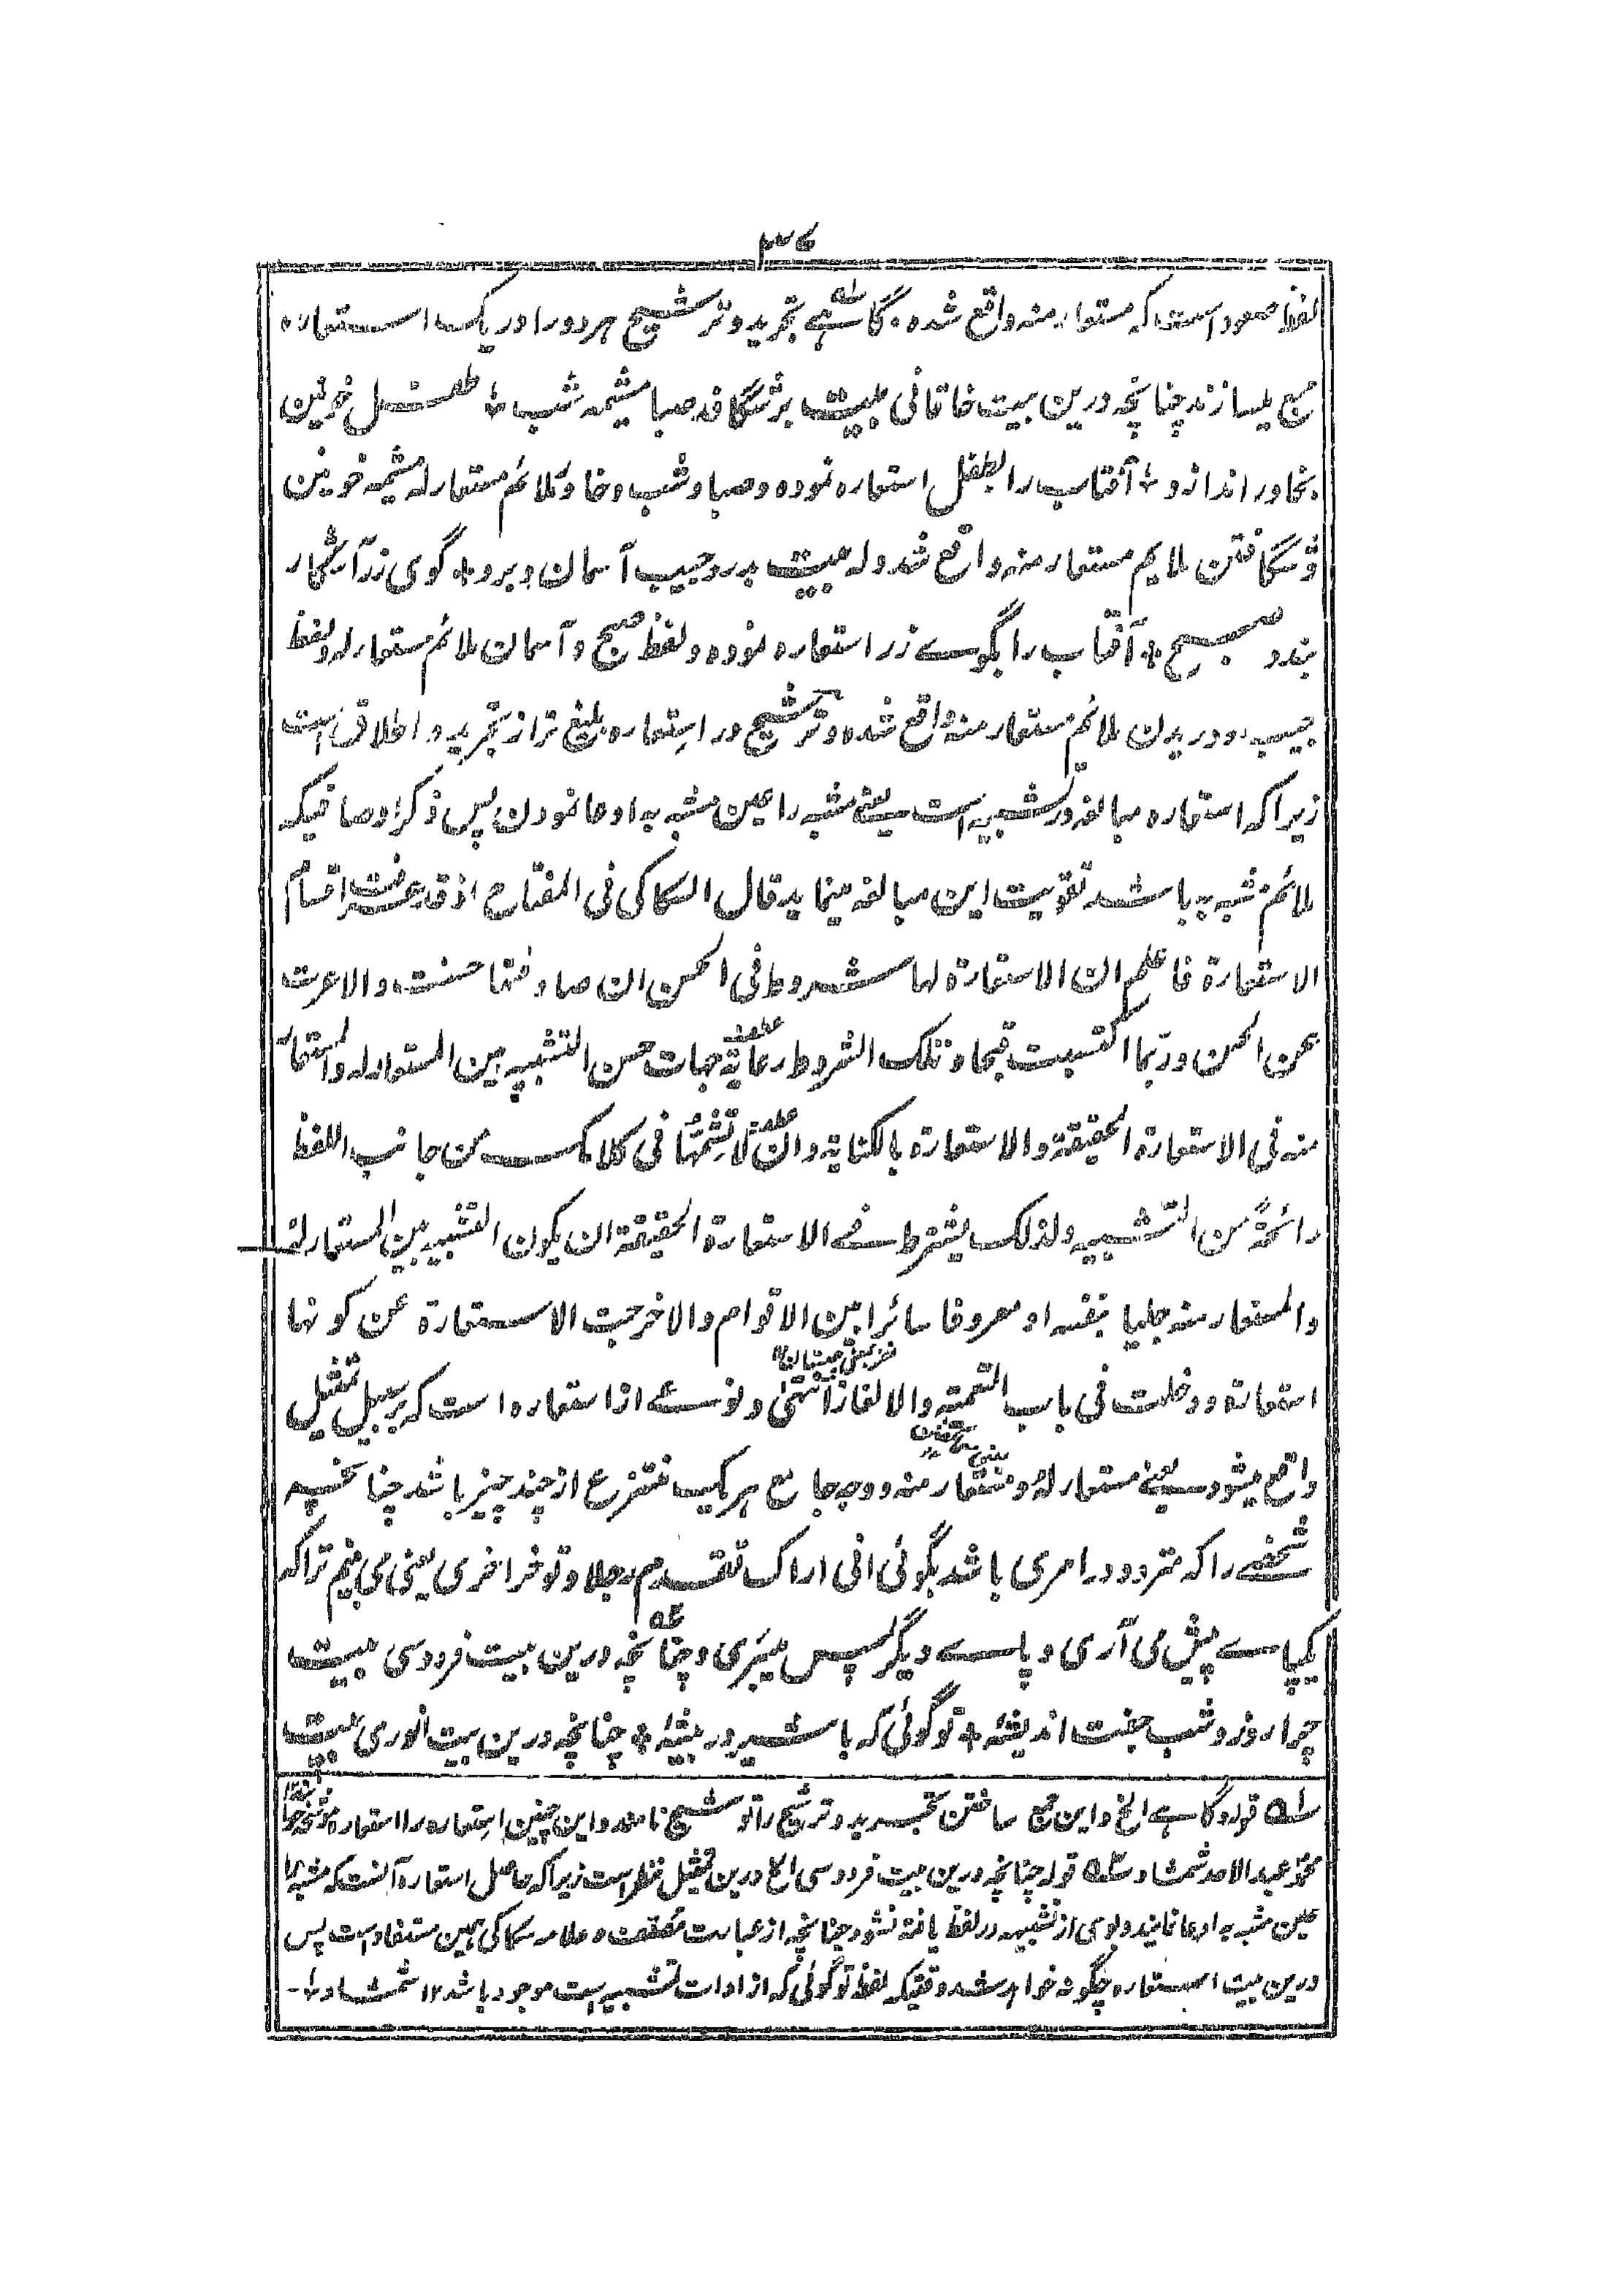 ۳۶
لفظ صعود است که مستعار منه واقع شده. گاهے تجرید و ترشیح هر دو را در یک استعاره
جمع میسازند چنانچه درین بیت خاقانی بیت بشگافد صبا مشیمه شب + طفل خونین
بخاور اندازد + آفتاب را بطفل استعاره نموده و صبا و شب و خاور ملائم مستعار له مشیمه خونین
و شگافتن ملایم مستعار منه واقع شد وله بیت بدرد جیب آسمان و برو + گوی زر آشکار
بندد صبح + آفتاب را بگوے زر استعاره نموده و لفظ صبح و آسمان ملائم مستعار له و لفظ
جیب و دریدن ملائم مستعار منه واقع شده و ترشیح در استعاره بلیغ تر از تجرید و اطلاق است
زیراکه استعاره مبالغه در تشبیه است یعنے مشبه را عین مشبه به ادعا نمودن پس ذکر اوصافیکه
ملائم مشبه به باشد تقویت این مبالغه مینماید قال السکاکی فی المفتاح اذ قد عرفت اقسام
الاستعارة فاعلم ان الاستعارة لها شروط فی الحسن ان صادفتها حسنت و الا عرت
عن الحسن و ربما اکتسبت قبحا و تلک الشروط رعایة جهات حسن التشبیه بین المستعار له و المستعار
منه فی الاستعارة الحقیقة و الاستعارة بالکنایة و ان لا تشمها فی کلامک من جانب اللفظ
رائحة من التشبیه و لذلک یشترط فے الاستعارة الحقیقة ان یکون التشبیه بین المستعار له
و المستعار منه جلیا بنفسه او معروفا سائرا بین الاقوام و الا خرجت الاستعارة عن کونها
استعارة و دخلت فی باب التعمیة و الالغاز انتهی و نوعے از استعاره است که بر سبیل تمثیل
واقع میشود یعنے مستعار له و مستعار منه و وجه جامع هر یک منتزع از چند چیز باشد چنانچه
شخصے را که متردد در امری باشد بگوئی انی اراک تقدم رجلا و توخر اخری یعنی می بینم ترا که
یکپاے پیش می آری و پاے دیگر پس میبری و چنانچه درین بیت فردوسی بیت
چرا روز و شب جفت اندیشهٔ + تو گوئی که با شیر در بیشهٔ + چنانچه درین بیت انوری بیت
۱ه قوله و گاهے الخ و این جمع ساختن تجرید و ترشیح را توشیح نامند و این چنین استعاره را استعاره موشحه
محمد عبد الاحد شمشاد ۲ه قوله چنانچه درین بیت فردوسی الخ درین تمثیل نظر است زیراکه حاصل استعاره آنست که مشبه را
عین مشبه به ادعا نمایند و بوی از تشبیه در لفظ یافته نشود چنانچه از عبارت مصنف و علامه سکاکی همین مستفاد است پس
درین بیت استعاره چگونه خواهد شد وقتیکه لفظ تو گوئی که از ادات تشبیه است موجود باشد ۱۲ شمشاد